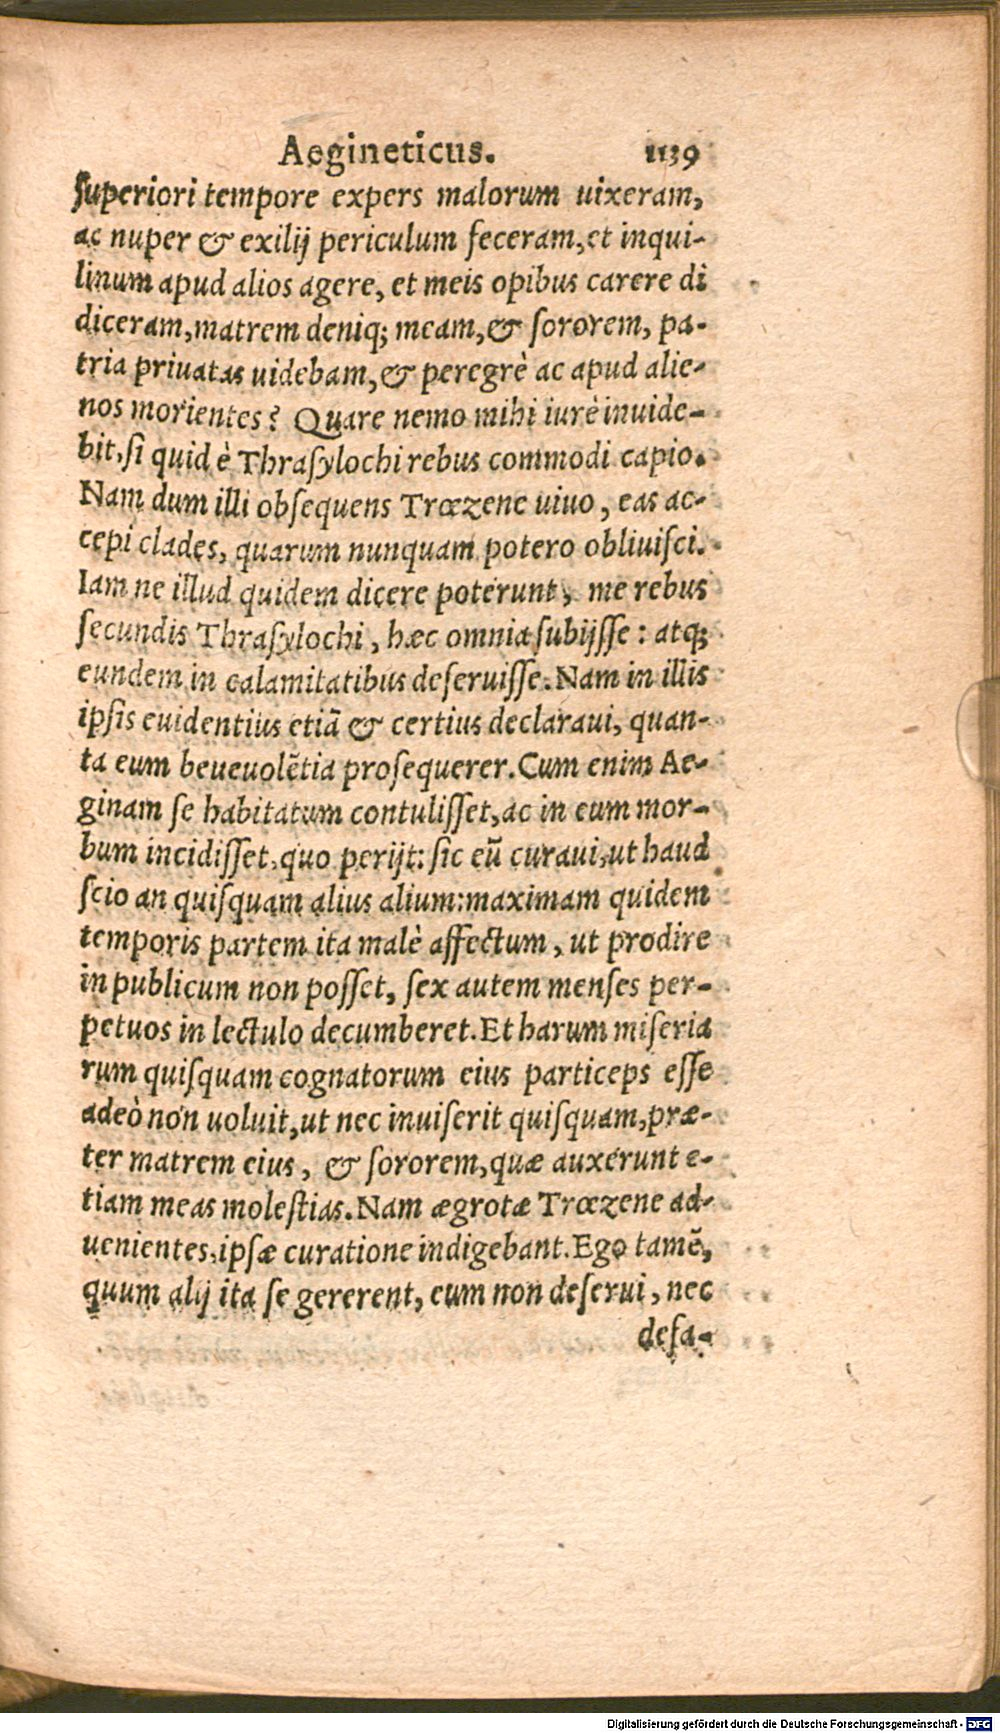 Aegineticus. 1139
ſuperiori tempore expers malorum uixeram,
ac nuper & exilij periculum feceram, et inqui-
linum apud alios agere, et meis opibus carere di
diceram, matrem deniq; meam, & ſororem, pa-
tria priuatas uidebam, & peregrè ac apud alie-
nos morientes? Quare nemo mihi iurè inuide-
bit, ſi quid è Thraſylochi rebus commodi capio.
Nam dum illi obſequens Trœzene uiuo, eas ac-
cepi clades, quarum nunquam potero obliuiſci.
Iam ne illud quidem dicere poterunt, me rebus
ſecundis Thraſylochi, hæc omnia ſubijſſe: atq;
eundem in calamitatibus deſeruiſſe. Nam in illis
ipſis euidentius etiã & certius declaraui, quan-
ta eum beueuolẽtia proſequerer. Cum enim Ae-
ginam ſe habitatum contuliſſet, ac in eum mor-
bum incidiſſet, quo perijt: ſic eũ curaui, ut haud
ſcio an quiſquam alius alium: maximam quidem
temporis partem ita malè affectum, ut prodire
in publicum non poſſet, ſex autem menſes per-
petuos in lectulo decumberet. Et harum miſeria
rum quiſquam cognatorum eius particeps eſſe
adeò non uoluit, ut nec inuiſerit quiſquam, præ-
ter matrem eius, & ſororem, quæ auxerunt e-
tiam meas moleſtias. Nam ægrotæ Trœzene ad-
uenientes, ipſæ curatione indigebant. Ego tamẽ,
quum alij ita ſe gererent, eum non deſerui, nec
defa-
Digitalisierung gefördert durch die Deutsche Forschungsgemeinschaft - DFG